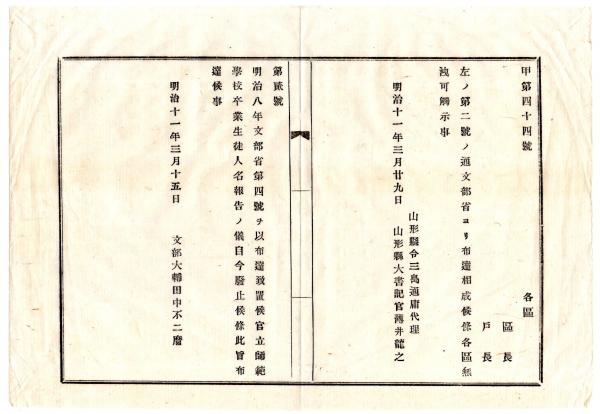 甲第四十四號
各區
區長
戶長
左ノ第二號ノ通文部省ヨリ布達相成候條各區無
洩可觸示事
明治十一年三月廿九日
山形縣令三島通庸代理
山形縣大書記官薄井龍之
第貳號
明治八年文部省第四號ヲ以布達致置候官立師範
學校卒業生徒人名報告ノ儀自今廢止候條此旨布
達候事
明治十一年三月十五日
文部大輔田中不二麿